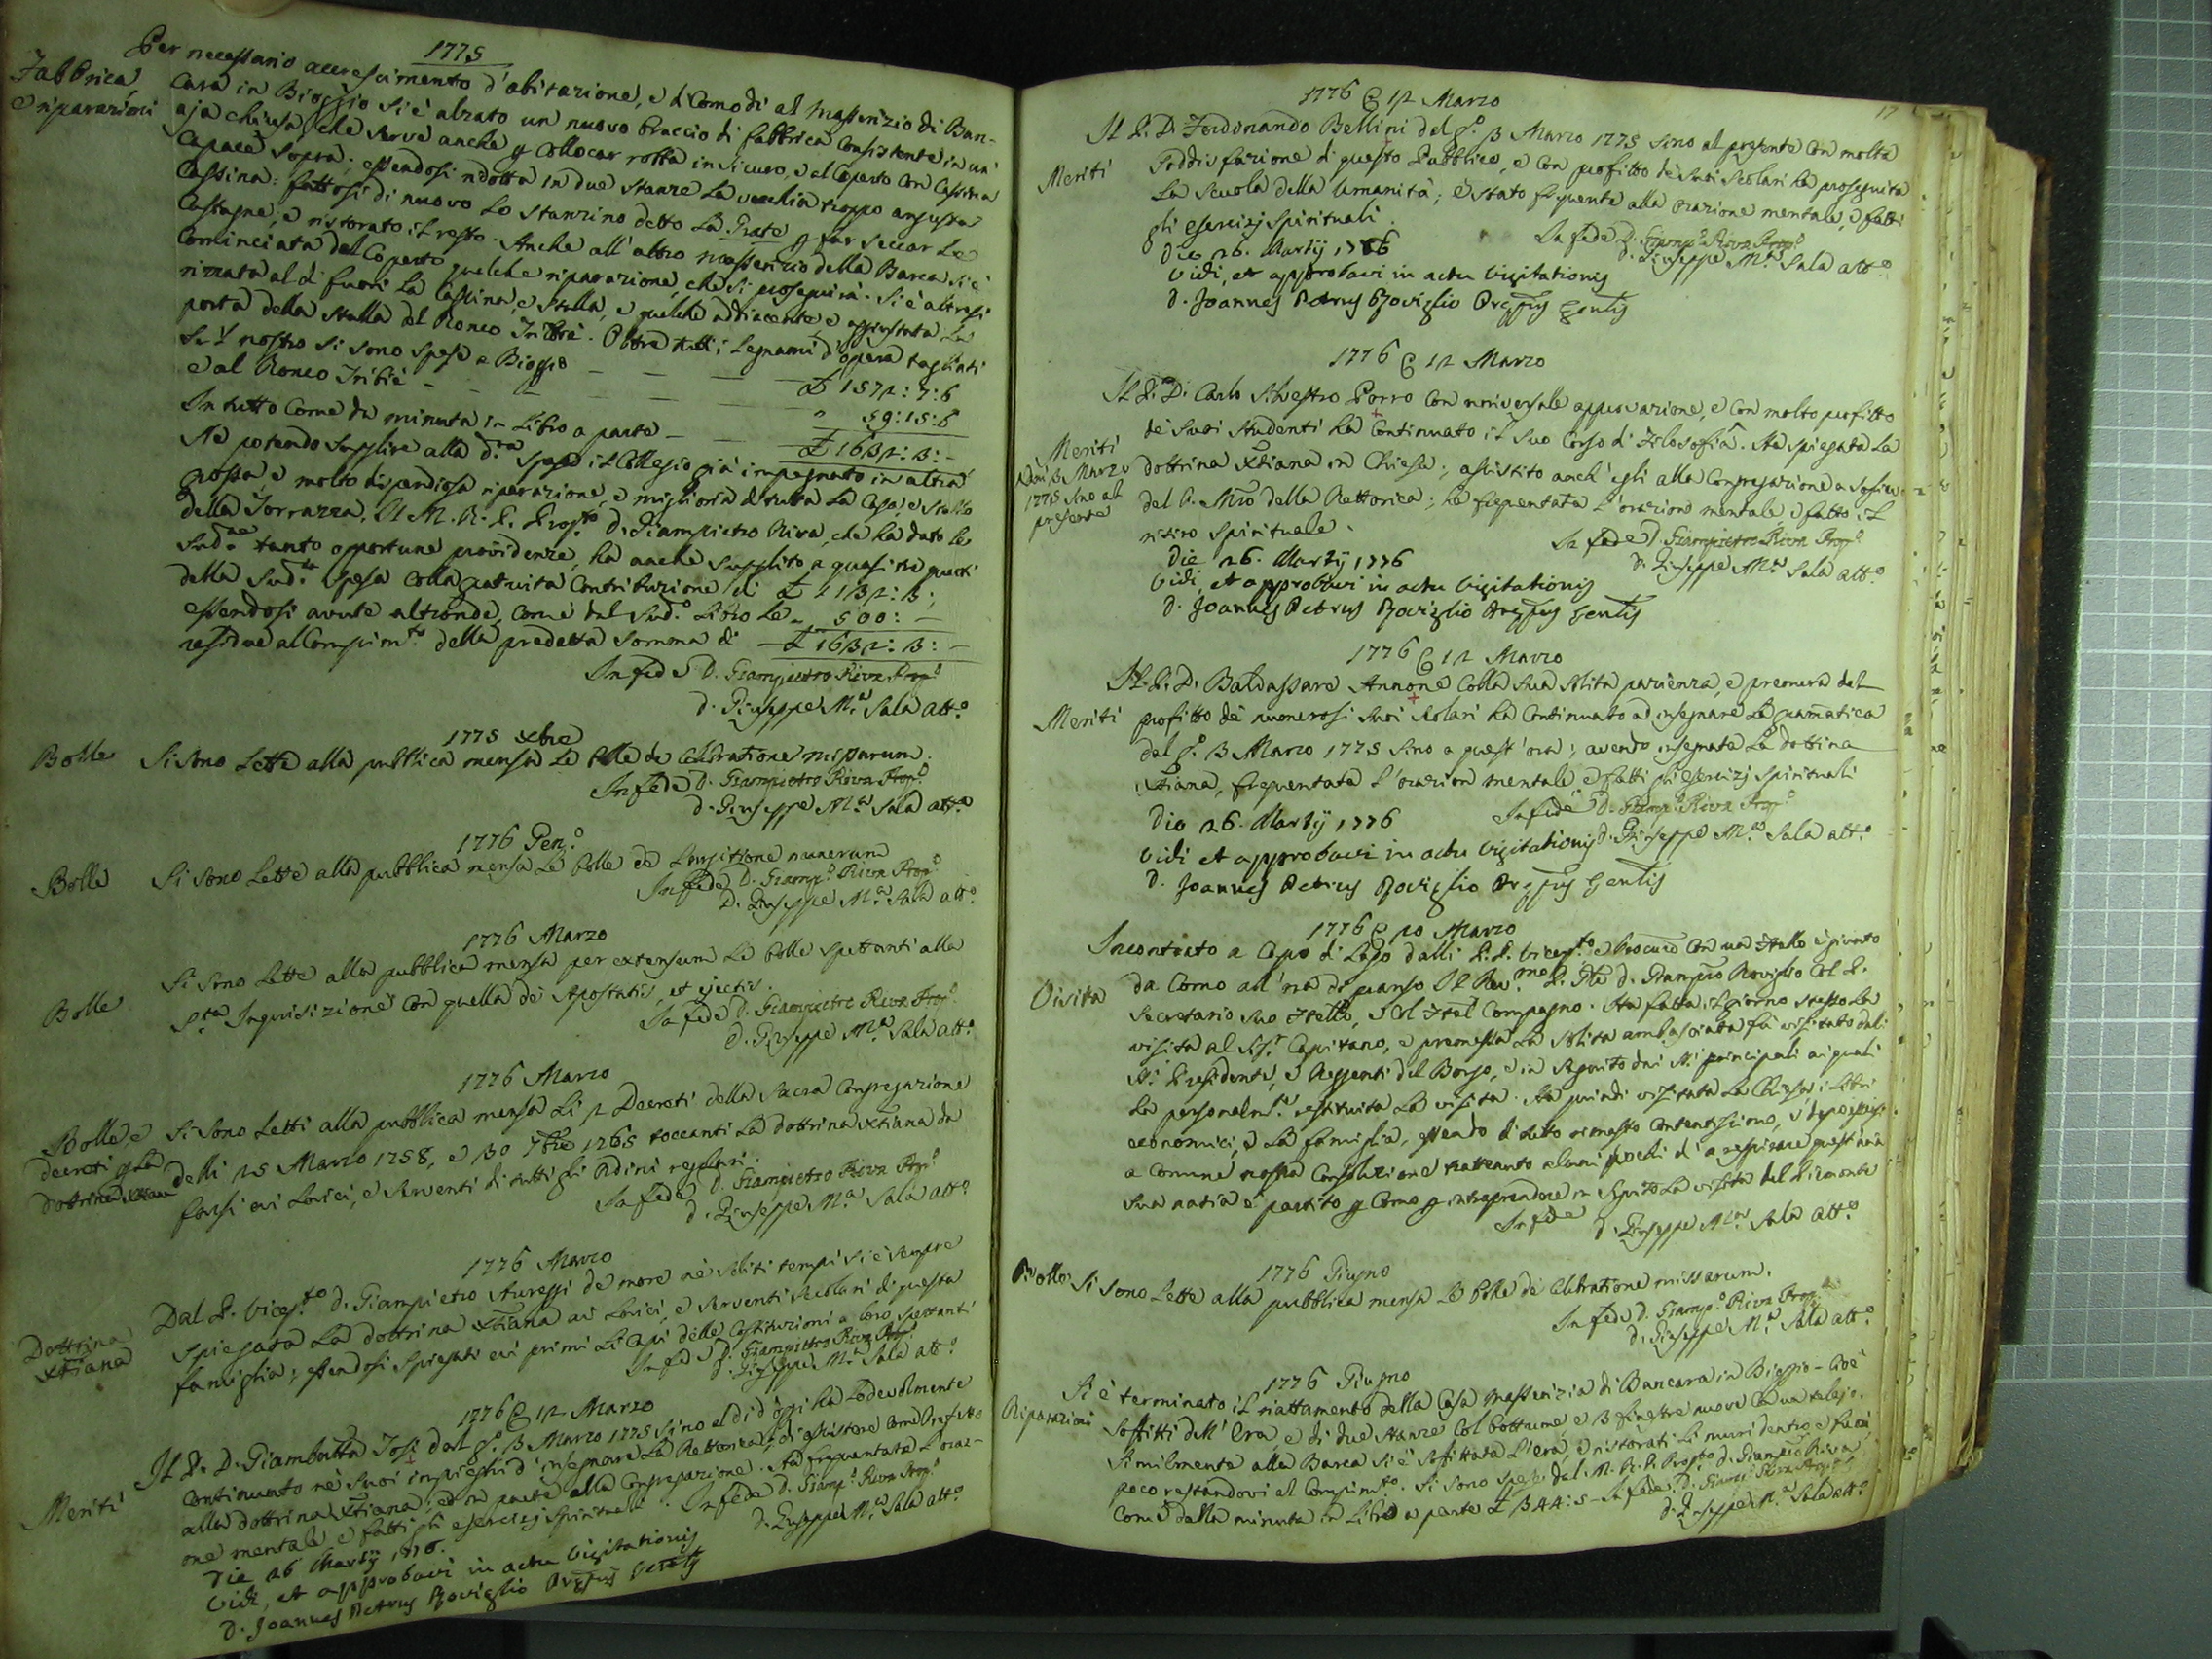 1775
Fabbrica,
e riparazioni
Per necessario accrescimento d'abitazione, e di comodi al Masserizio di Ban-
cara in Bioggio si è alzato un nuovo braccio di fabbrica consistente in un'
aja chiusa, che serve anche p collocar robba in sicuro, e al coperto con Cassina
capace sopra; essendosi ridotta in due stanze la vecchia troppo angusta
Cassina: fattosi di nuovo lo stanzino detto la Grate p far seccar le
Castagne, e ristorato il resto. Anche all'altro Masserizio della Barca si è
cominciata del Coperto qualche riparazione, che si proseguirà. Si è altresì
rizzata al di fuori la Cassina, e Stalla, e qualche adiacente, e aggiustata la
porta della Stalla del Ronco Tribiè. Oltre tutti i legnami d'opera tagliati
su'l nostro si sono spese a Bioggio — — — £ 1572:7:6
e al Ronco Tribiè — — — — " 59:15:6
In tutto come da minuta in Libro a parte — — £ 1632:3:-
Nè potendo supplire alla d.ta spesa il Collegio già impegnato in altra
grossa, e molto dispendiosa riparazione, e miglioria di tutta la Casa, e Stalla
della Torrazza, Il M. R. P. Prop.to D. Giampietro Riva, che ha dato le
sud.e tanto opportune providenze, ha anche supplito a quasi tre quarti
della sud.ta spesa colla gratuita contribuzione di £ 1132:3:
essendosi avute altronde, come dal sud.o Libro le 500: —
residue al Compim.to della predetta somma di — £ 1632:3: —
In fede D. Giampietro Riva Prop.o
D. Giuseppe M.a Sala att.o
1775 Xbre
Bolle
Si sono lette alla pubblica mensa le Bolle de celebratione missarum.
In fede D. Giampietro Riva Prop.o
D. Giuseppe M.a Sala att.o
1776 Gen.o
Bolle
Si sono lette alla pubblica mensa le Bolle de largitione munerum
In fede D. Giamp.o Riva Prop.o
D. Giuseppe M.a Sala att.o
1776 Marzo
Bolle
Si sono lette alla pubblica mensa per extensum le Bolle spettanti alla
S.ta Inquisizione con quella de Apostatis, et ejectis.
In fede D. Giampietro Riva Prop.o
D. Giuseppe M.a Sala att.o
1776 Marzo
Bolle, e
decreti p la
Dottrina Xtiana
Si sono letti alla pubblica mensa li 2 Decreti della Sacra Congregazione
delli 25 Marzo 1758, e 30 7bre 1765 toccanti la dottrina Xtiana da
farsi ai Laici, e Serventi di tutti gli Ordini regolari.
In fede D. Giampietro Riva Prop.o
D. Giuseppe M.a Sala att.o
1776 Marzo
Dottrina
Xtiana
Dal P. Vicep.to D. Giampietro Auressi de more ne' soliti tempi si è sempre
spiegata la dottrina Xtiana ai Laici, e Serventi secolari di questa
famiglia; essendosi spiegati ai primi li Capi delle Costituzioni a loro spettanti
In fede D. Giampietro Riva Prop.o
D. Giuseppe M.a Sala att.o
1776 12 Marzo
Meriti
Il P. D. Giambatta Tosi dal g.o 3 Marzo 1775 sino al dì d'oggi ha lodevolmente
continuato ne' suoi impieghi d'insegnare la Rettorica, di assistere come Prefetto
alla dottrina Xtiana, ed in parte alla Congregazione. Ha frequentata l'oraz-
one mentale, e fatti gli esercizj spirituali. In fede D. Giamp.o Riva Prop.o
D. Giuseppe M.a Sala att.o
Die 26 Martij 1776.
Vidi, et approbavi in actu Visitationis
D. Joannes Petrus Roviglio
17
1776 12 Marzo
Meriti
Il P. D. Ferdinando Bellini dal g.o 3 Marzo 1775 sino al presente con molta
soddisfazione di questo Pubblico, e con profitto de' suoi Scolari ha proseguita
la Scuola della Umanità; è stato frequente alla orazione mentale, e fatti
gli esercizj spirituali.
In fede D. Giamp.o Riva Prop.o
D. Giuseppe M.a Sala att.o
Die 26. Martij 1776
Vidi, et approbavi in actu Visitationis
D. Joannes Petrus Roviglio
1776 12 Marzo
Meriti
Dai 3 Marzo
1775 sino al
presente
Il P. D. Carlo Silvestro Porro con universale approvazione, e con molto profitto
de' suoi Studenti ha continuato il suo Corso di Filosofia. Ha spiegata la
dottrina Xtiana in Chiesa; assistito anch'egli alla Congregazione a
del P. Mro della Rettorica; ha frequentata l'orazione mentale e fatto il
ritiro spirituale.
In fede D. Giampietro Riva Prop.o
D. Giuseppe M.a Sala att.o
Die 26. Martij 1776
Vidi, et approbavi in actu Visitationis
D. Joannes Petrus Roviglio
1776 12 Marzo
Meriti
Il P. D. Baldassare Annone colla sua solita pazienza, e premura del
profitto de' numerosi suoi Scolari ha continuato ad insegnare la gramatica
dal g.o 3 Marzo 1775 sino a quest'ora; avendo insegnata la dottrina
Xtiana, frequentata l'orazion mentale, e fatti gli esercizj spirituali
In fede D. Giamp.o Riva Prop.o
D. Giuseppe M.a Sala att.o
Die 26. Martij 1776
Vidi et approbavi in actu Visitationis
D. Joannes Petrus Roviglio
1776 20 Marzo
Visita
Incontrato a Capo di Lago dalli P. P. Vicep.to e Procur.e con un Ftello è giunto
da Como all'ora di pranzo Il Rev.mo P. Gle D. Giampro Roviglio col P.
Secretario suo Ftello, e col Ftel Compagno. Ha fatta il giorno stesso la
visita al Sig.r Capitano, e premessa la solita ambasciata fù visitato dalli
SS.i Presidente, e Reggenti del Borgo, e in seguito dai SS.i principali ai quali
ha personalm.te restituita la visita. Ha quindi visitata la Chiesa, i Libri
economici, e la famiglia, essendo di tutto rimasto contentissimo, e dopo essersi
a comune nostra consolazione trattenuto alcuni pochi dì a respirare quest'aria
sua natia è partito p Como p intraprendere in seguito la visita del Piemonte
In fede
D. Giuseppe M.a Sala att.o
1776 Giugno
Bolle
Si sono lette alla pubblica mensa le Bolle de celebratione missarum.
In fede D. Giamp.o Riva Prop.o
D. Giuseppe M.a Sala att.o
1776 Giugno
Riparazioni
Si è terminato il riattamento della Casa Masserizia di Bancara in Bioggio - cioè
soffitti dell'Era, e di due stanze col bottume, e 3 finestre nuove con un telajo.
Similmente alla Barca si è soffittata l'Era, e ristorati li muri dentro e fuori
poco restandovi al Compim.to. Si sono spese dal M. R. P. Prop.to D. Giampro Riva
come dalla minuta in Libro a parte £ 344:5 - In fede D. Giamp.o Riva Prop.o
D. Giuseppe M.a Sala att.o